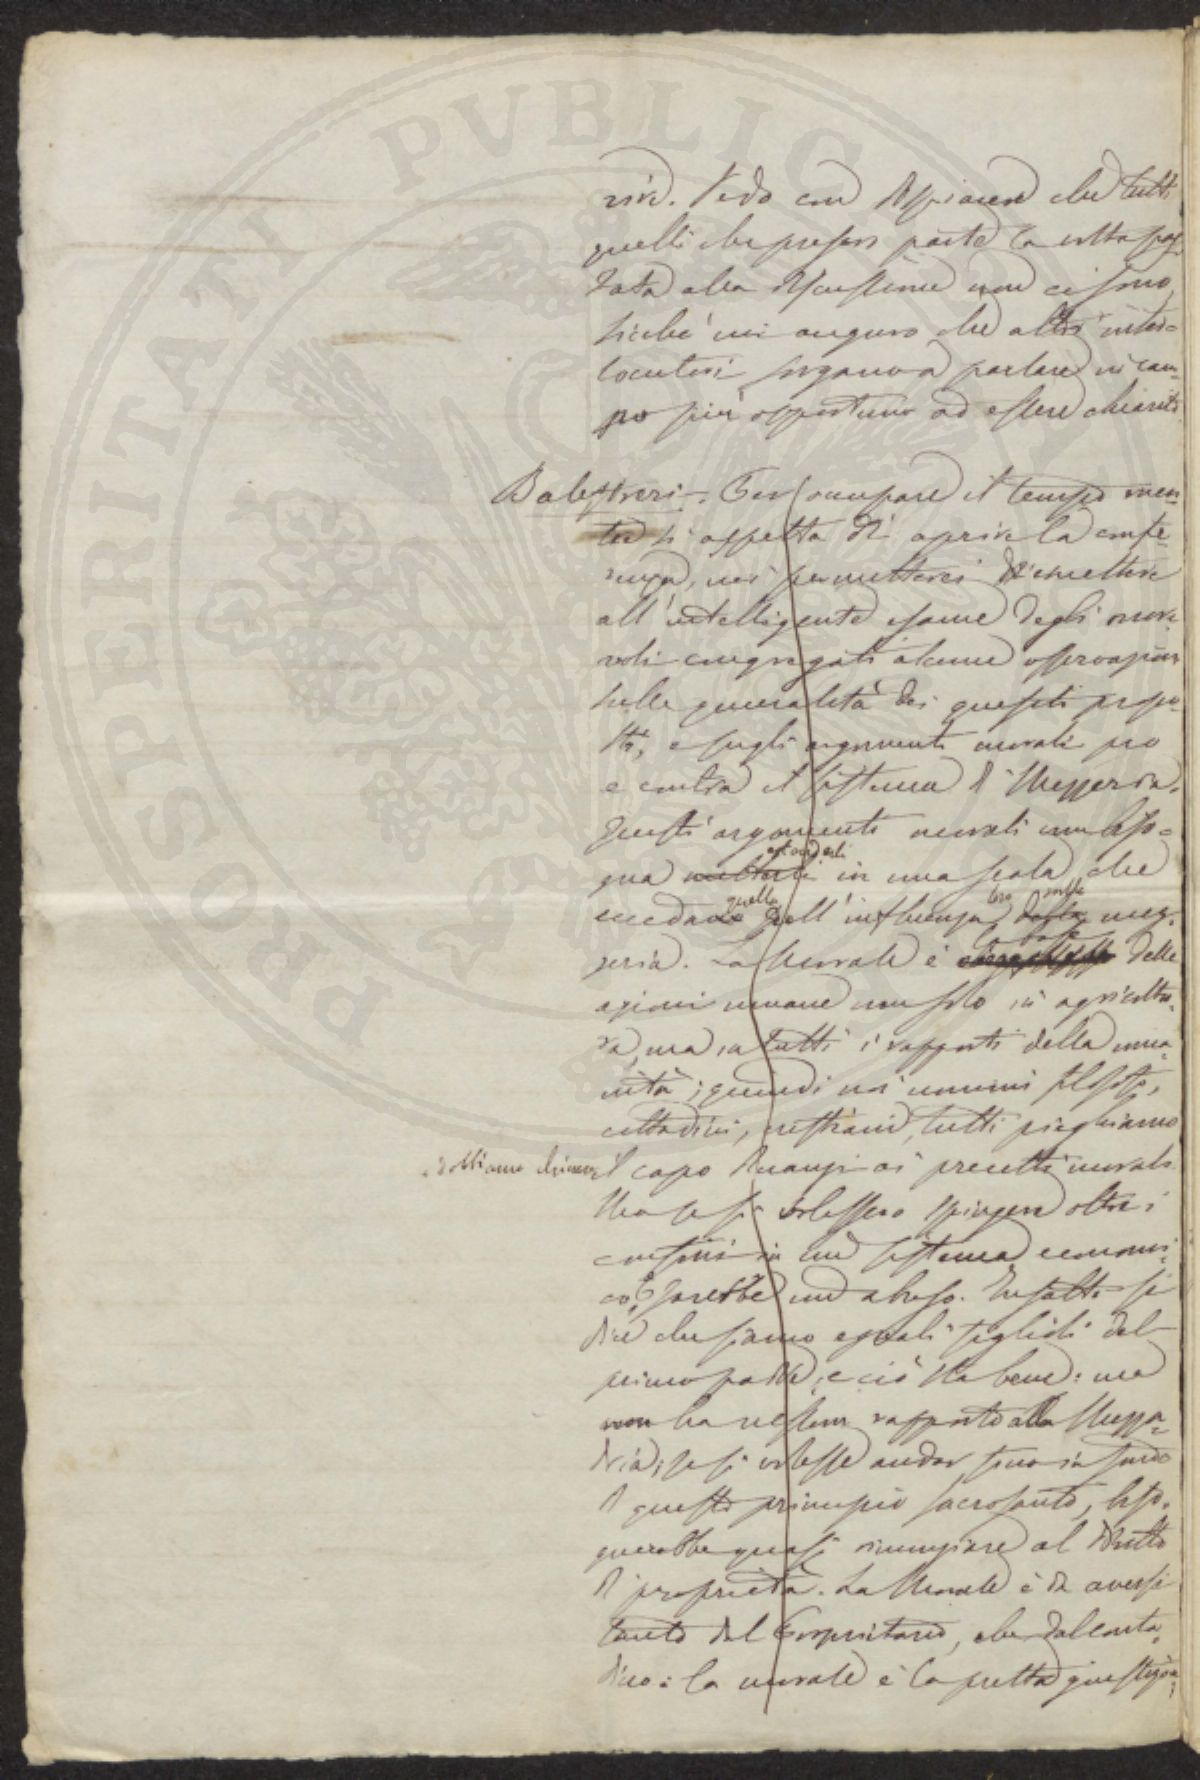 rire. Vedo con dispiacere che tutti
quelli che presero parte la volta pas-
sata alla discussione non ci sono,
sicché mi auguro che altri inter=
locutori sorgano a parlare in cam=
po più opportuno ad essere chiarito.
Balestreri -. Per occupare il tempo men=
tre si aspetta di aprire la confe=
renza, mi permetterei di emettere
all'intelligente esame degli onore
voli congregati alcune osservazioni
sulla generalità dei quesiti propo=
sti, e sugli argomenti morali pro
e contra il sistema di Mezzeria.
Questi argomenti morali non biso=
estenderli
gna metterli in una scala che
quella loro sulla
eccedano dell'influenza della mez=
la base
zeria. La Morale è delle
azioni umane non solo in agricoltu=
ra, ma in tutti i rapporti della uma=
nità; quindi noi uomini filosofi,
cittadini, cristiani, tutti pieghiamo
dobbiamo chinare il capo dinanzi ai precetti morali.
Ma se si volessero spingere oltre i
confini in un sistema economi=
co, sarebbe un abuso. Infatti si
dice che siamo eguali figlioli del
primo padre, e ciò sta bene: ma
non ha nessun rapporto alla Mezza=
dria; se si volesse andar sino in fondo
di questo principio sacrosanto, biso=
gnerebbe quasi rinunziare al diritto
di proprietà. La Morale è da aversi
tanto dal Proprietario, che dal conta=
dino: la morale è la pretta giustizia;
PROSPERITATI PVBLIC